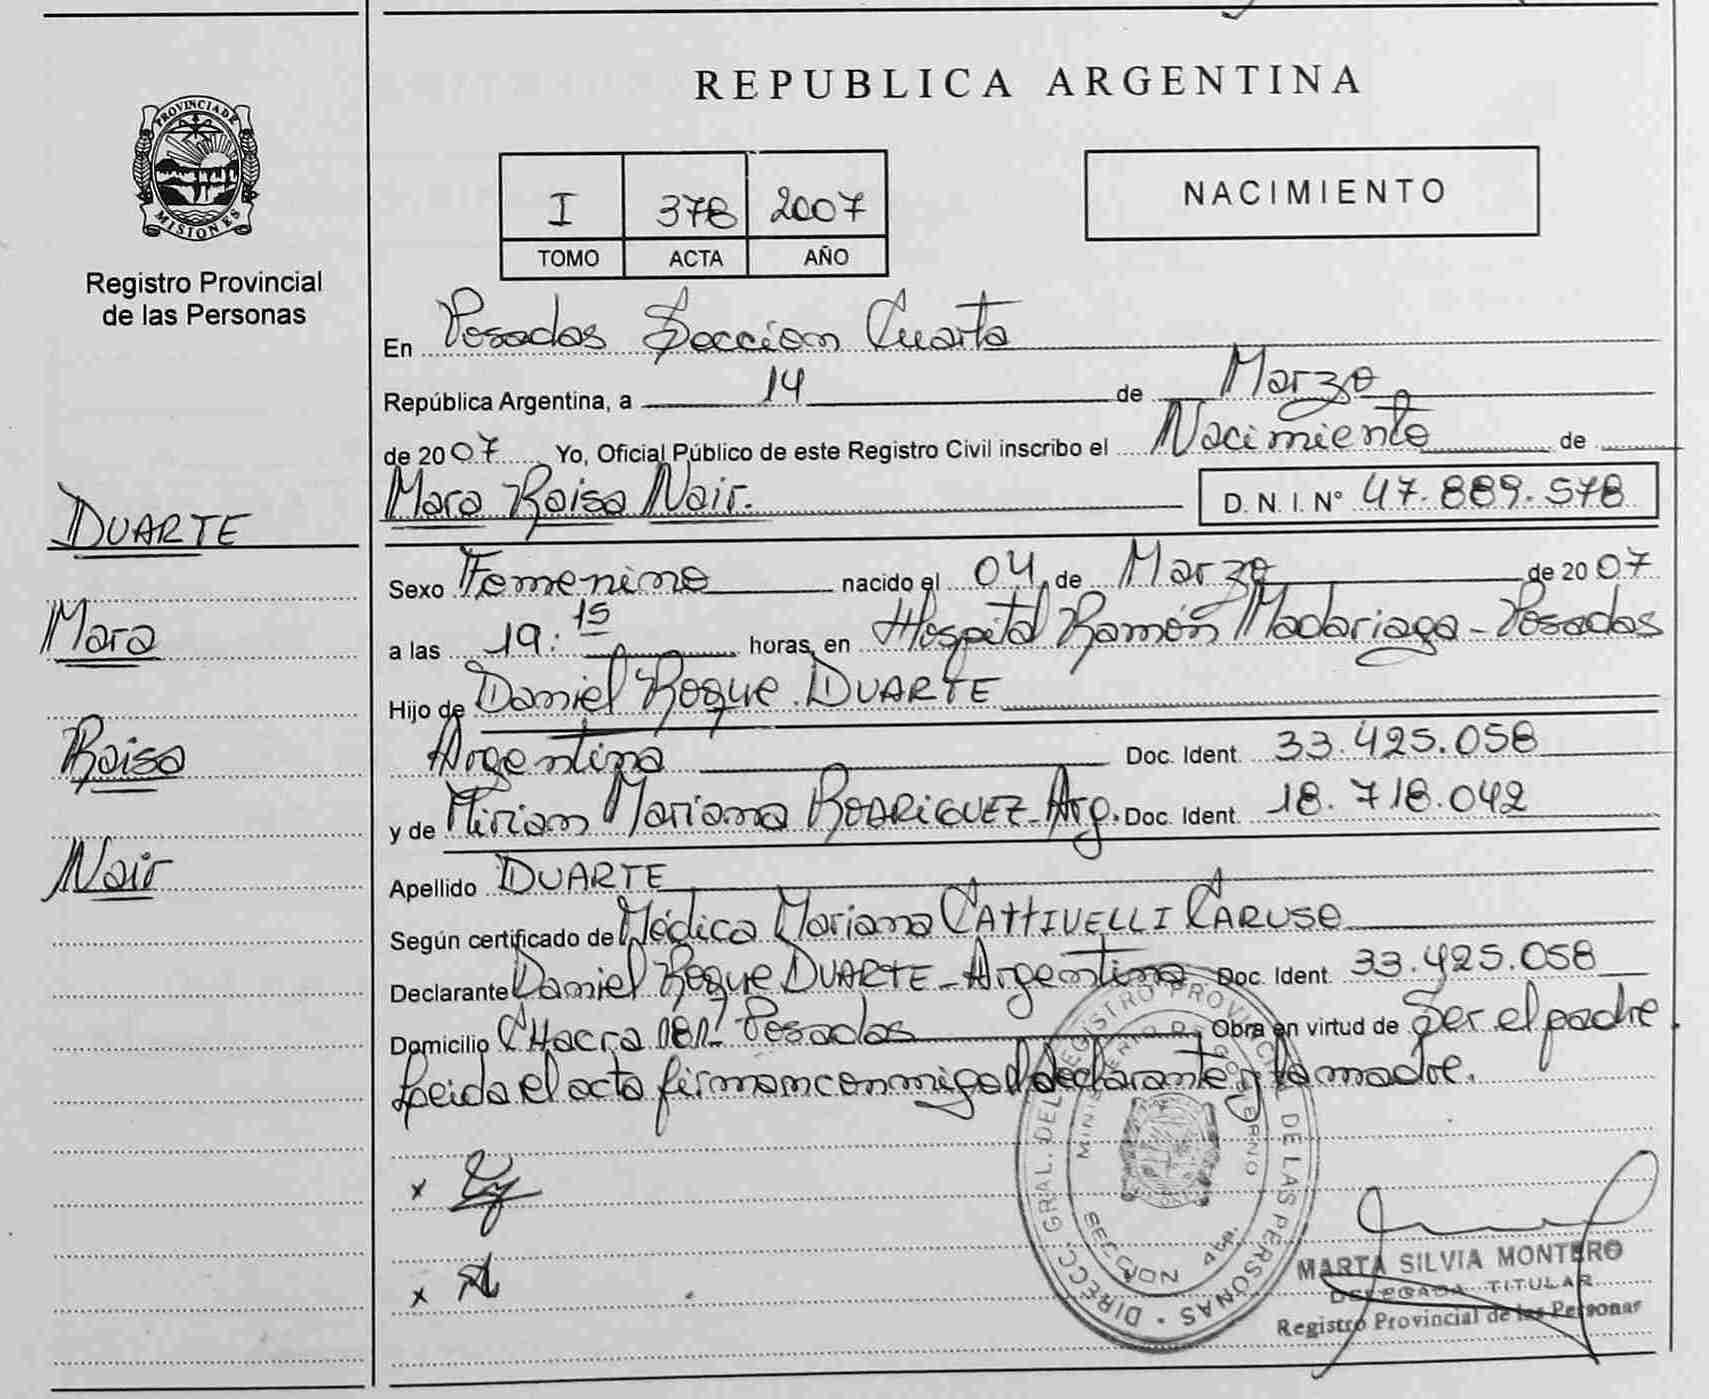 REPUBLICA ARGENTINA
PROVINCIA DE
MISIONES
Registro Provincial
de las Personas
I 378 2007
TOMO ACTA AÑO
NACIMIENTO
En Posadas Seccion Cuarta
República Argentina, a 14 de Marzo
de 2007 Yo, Oficial Público de este Registro Civil inscribo el Nacimiento de
Mara Raisa Nair. D. N. I. N° 47.889.578
DUARTE
Mara
Raisa
Nair
Sexo Femenino nacido el 04 de Marzo de 2007
a las 19:15 horas, en Hospital Ramón Madariaga - Posadas
Hijo de Daniel Roque DUARTE
Argentina Doc. Ident. 33.425.058
y de Miriam Mariana RODRIGUEZ - Arg. Doc. Ident. 18.718.042
Apellido DUARTE
Según certificado de Médica Mariana CATTIVELLI CARUSO
Declarante Daniel Roque DUARTE - Argentina Doc. Ident. 33.425.058
Domicilio CHacra 181 - Posadas Obra en virtud de Ser el padre.
Leida el acta firman conmigo el declarante y la madre.
x
x
DIRECC. GRAL. DEL REGISTRO PROVINCIAL DE LAS PERSONAS
MINISTERIO DE GOBIERNO
SECCION 4ta.
MARTA SILVIA MONTERO
DELEGADA TITULAR
Registro Provincial de las Personas